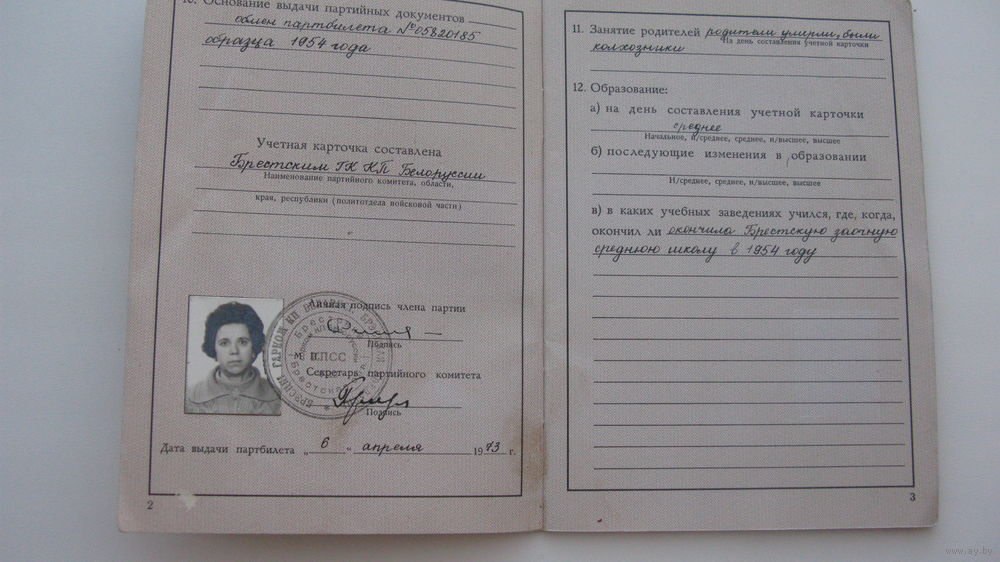 10. Основание выдачи партийных документов
обмен партбилета № 05820185
образца 1954 года
Учетная карточка составлена
Брестским ГК КП Белоруссии
Наименование партийного комитета, области,
края, республики (политотдела войсковой части)
Личная подпись члена партии
Подпись
М. П.
КПСС
Секретарь партийного комитета
Подпись
Дата выдачи партбилета „ 6 “ апреля 1973 г.
2
11. Занятие родителей родители умерли, были
На день составления учетной карточки
колхозники
12. Образование:
а) на день составления учетной карточки
среднее
Начальное, н/среднее, среднее, н/высшее, высшее
б) последующие изменения в образовании
Н/среднее, среднее, н/высшее, высшее
в) в каких учебных заведениях учился, где, когда,
окончил ли окончила Брестскую заочную
среднюю школу в 1954 году
3
www.ay.by